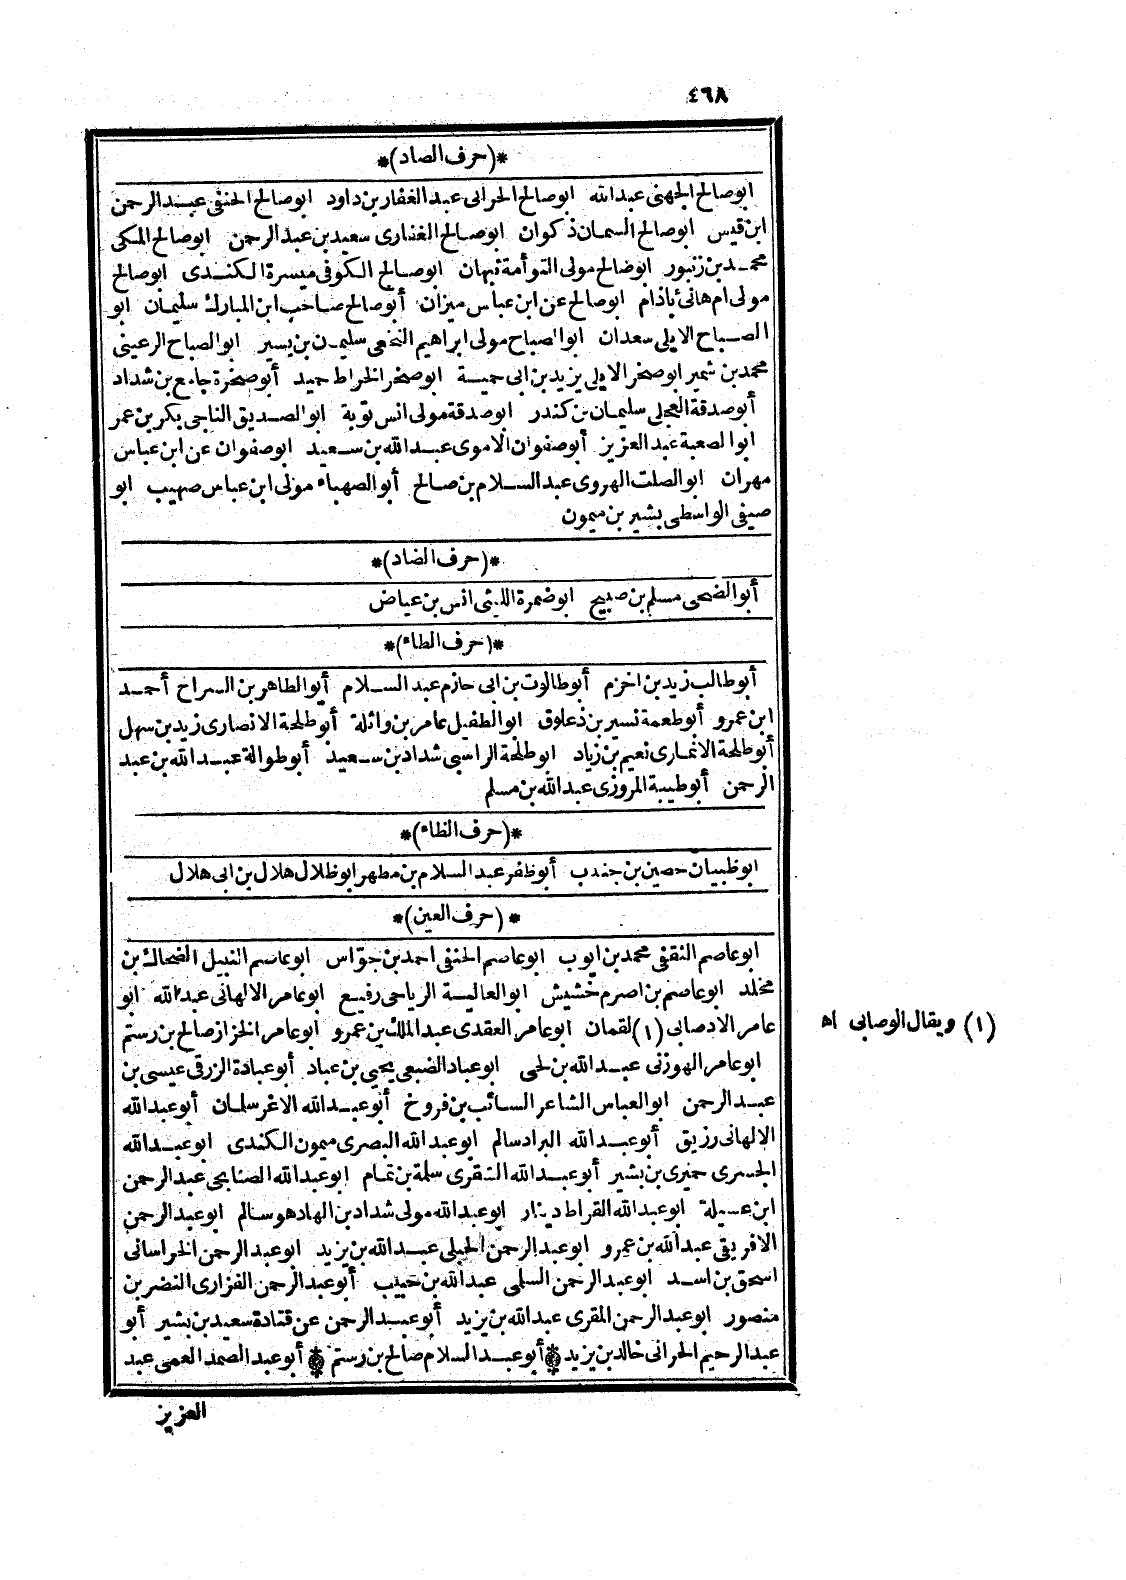 ٤٦٨
*(حرف الصاد)*
ابو صالح الجهنى عبد الله ابو صالح الحرانى عبد الغفار بن داود ابو صالح الحنفى عبد الرحمن
ابن قيس ابو صالح السمان ذكوان ابو صالح الغفارى سعيد بن عبد الرحمن ابو صالح المكى
محمد بن زنبور ابو صالح مولى التوأمة نبهان ابو صالح الكوفى ميسرة الكندى ابو صالح
مولى ام هانئ باذام ابو صالح عن ابن عباس ميزان أبو صالح صاحب ابن المبارك سليمان ابو
الصباح الايلى سعدان ابو الصباح مولى ابراهيم النخعى سليمن بن يسير ابو الصباح الرعينى
محمد بن شمير ابو صخر الايلى يزيد بن ابى حمية ابو صخر الخراط حميد أبو صخرة جامع بن شداد
أبو صدقة العجلى سليمان بن كندر ابو صدقة مولى انس توبة ابو الصديق الناجى بكر بن عمر
ابو الصعبة عبد العزيز أبو صفوان الاموى عبد الله بن سعيد ابو صفوان عن ابن عباس
مهران ابو الصلت الهروى عبد السلام بن صالح أبو الصهباء مولى ابن عباس صهيب ابو
صيفى الواسطى بشير بن ميمون
*(حرف الضاد)*
أبو الضحى مسلم بن صبيح ابو ضمرة الليثى انس بن عياض
*(حرف الطاء)*
أبو طالب زيد بن اخزم أبو طالوت بن ابى حازم عبد السلام أبو الطاهر بن السراح أحمد
ابن عمرو أبو طعمة نسير بن ذعلوق ابو الطفيل عامر بن واثلة أبو طلحة الانصارى زيد بن سهل
أبو طلحة الانمارى نعيم بن زياد ابو طلحة الراسبى شداد بن سعيد أبو طوالة عبد الله بن عبد
الرحمن أبو طيبة المروزى عبد الله بن مسلم
*(حرف الظاء)*
ابو ظبيان حصين بن جندب أبو ظفر عبد السلام بن مطهر ابو ظلال هلال بن ابى هلال
*(حرف العين)*
ابو عاصم الثقفى محمد بن ايوب ابو عاصم الحنفى احمد بن جواس ابو عاصم النبيل الضحاك بن
مخلد ابو عاصم بن اصرم خشيش ابو العالية الرياحى رفيع ابو عامر الالهانى عبد الله ابو
عامر الادصابى (١) لقمان ابو عامر العقدى عبد الملك بن عمرو ابو عامر الخزاز صالح بن رستم
(١) ويقال الوصابى اه
ابو عامر الهوزنى عبد الله بن لحى ابو عباد الضبعى يحيى بن عباد أبو عبادة الزرقى عيسى بن
عبد الرحمن ابو العباس الشاعر السائب بن فروخ أبو عبد الله الاغر سلمان أبو عبد الله
الالهانى رزيق أبو عبد الله البراد سالم ابو عبد الله البصرى ميمون الكندى ابو عبد الله
الجسرى حميرى بن بشير أبو عبد الله الشقرى سلمة بن تمام ابو عبد الله الصنابحى عبد الرحمن
ابن عسيلة ابو عبد الله القراط دينار ابو عبد الله مولى شداد بن الهاد هو سالم ابو عبد الرحمن
الافريقى عبد الله بن عمرو ابو عبد الرحمن الحبلى عبد الله بن يزيد ابو عبد الرحمن الخراسانى
اسحق بن اسد ابو عبد الرحمن السلمى عبد الله بن حبيب أبو عبد الرحمن الفزارى النضر بن
منصور ابو عبد الرحمن المقرى عبد الله بن يزيد أبو عبد الرحمن عن قتادة سعيد بن بشير أبو
عبد الرحيم الحرانى خالد بن يزيد * أبو عبد السلام صالح بن رستم * أبو عبد الصمد العمى عبد
العزيز